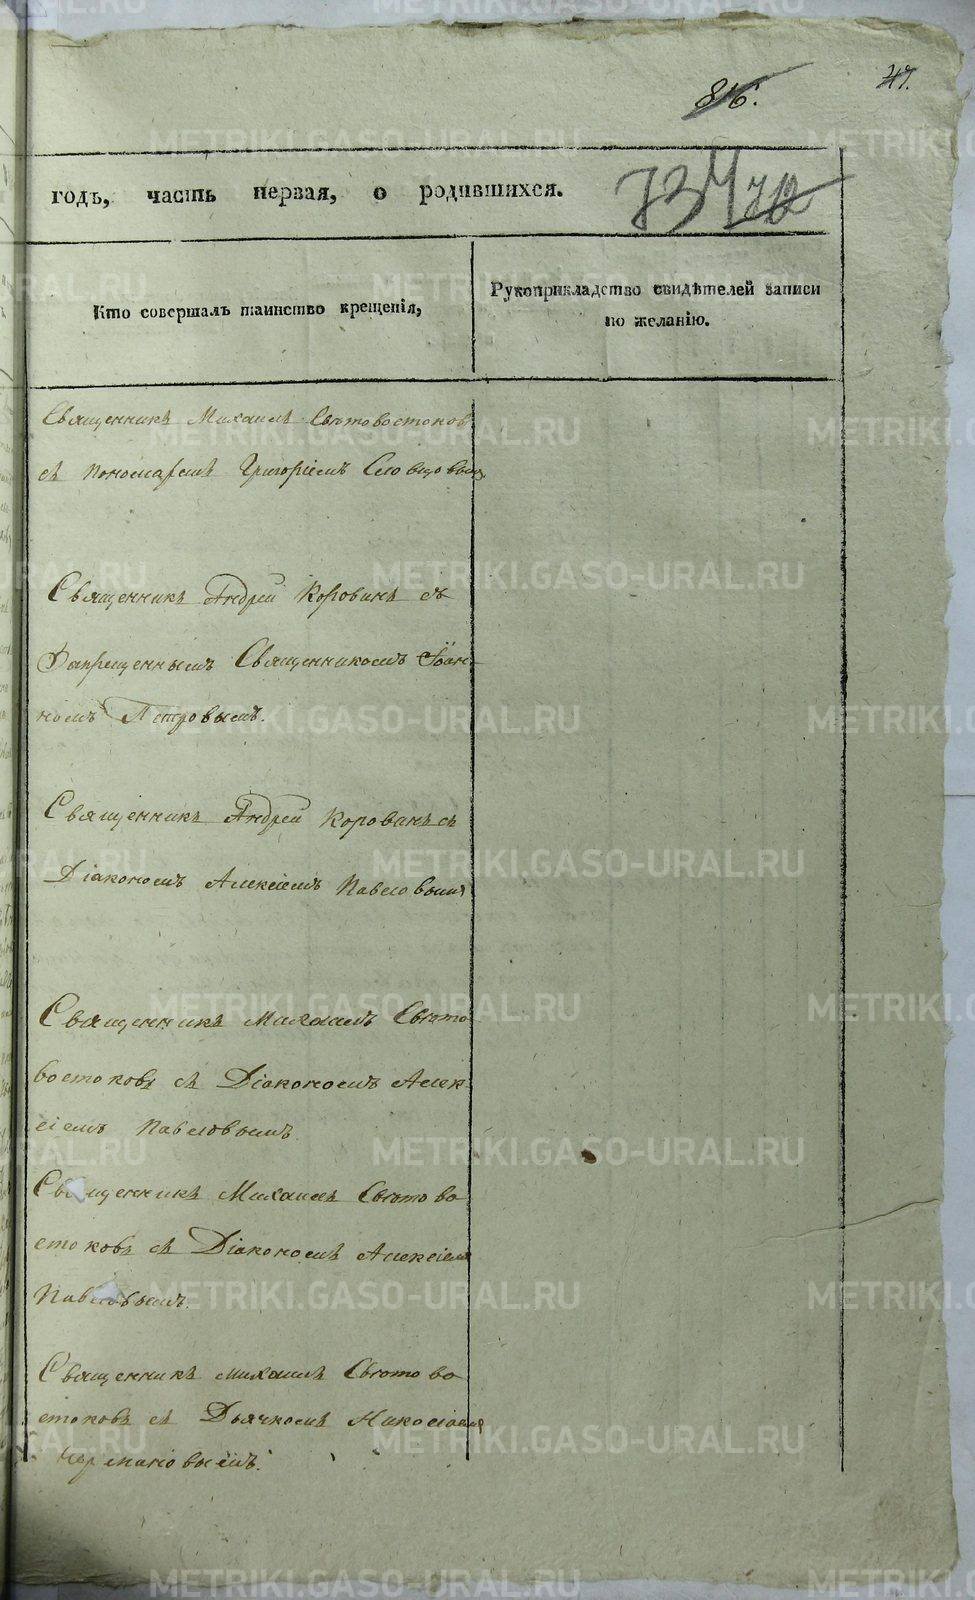 816.
47.
годъ, часть первая, о родившихся.
734
Кто совершалъ таинство крещенія,
Рукоприкладство свидѣтелей записи
по желанію.
Священникъ Михаилъ Свѣтовостоковъ
съ пономаремъ Григоріемъ Словцовымъ
Священникъ Андрей Коровинъ съ
Запрещеннымъ Священникомъ Іоан-
номъ Петровымъ.
Священникъ Андрей Коровинъ съ
Діакономъ Алексіемъ Павловымъ
Священникъ Михаилъ Свѣто
востоковъ съ Діакономъ Алек-
сіемъ Павловымъ
Священникъ Михаилъ Свѣтово
стоковъ съ Діакономъ Алексіемъ
Павловымъ.
Священникъ Михаилъ Свѣтово
стоковъ съ Дьячкомъ
METRIKI.GASO-URAL.RU